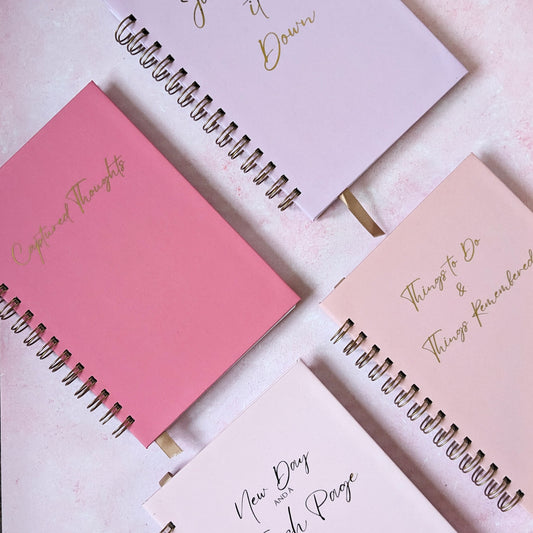 it
Down
Captured Thoughts
Things to Do
&
Things Remembered
New Day
AND A
Page